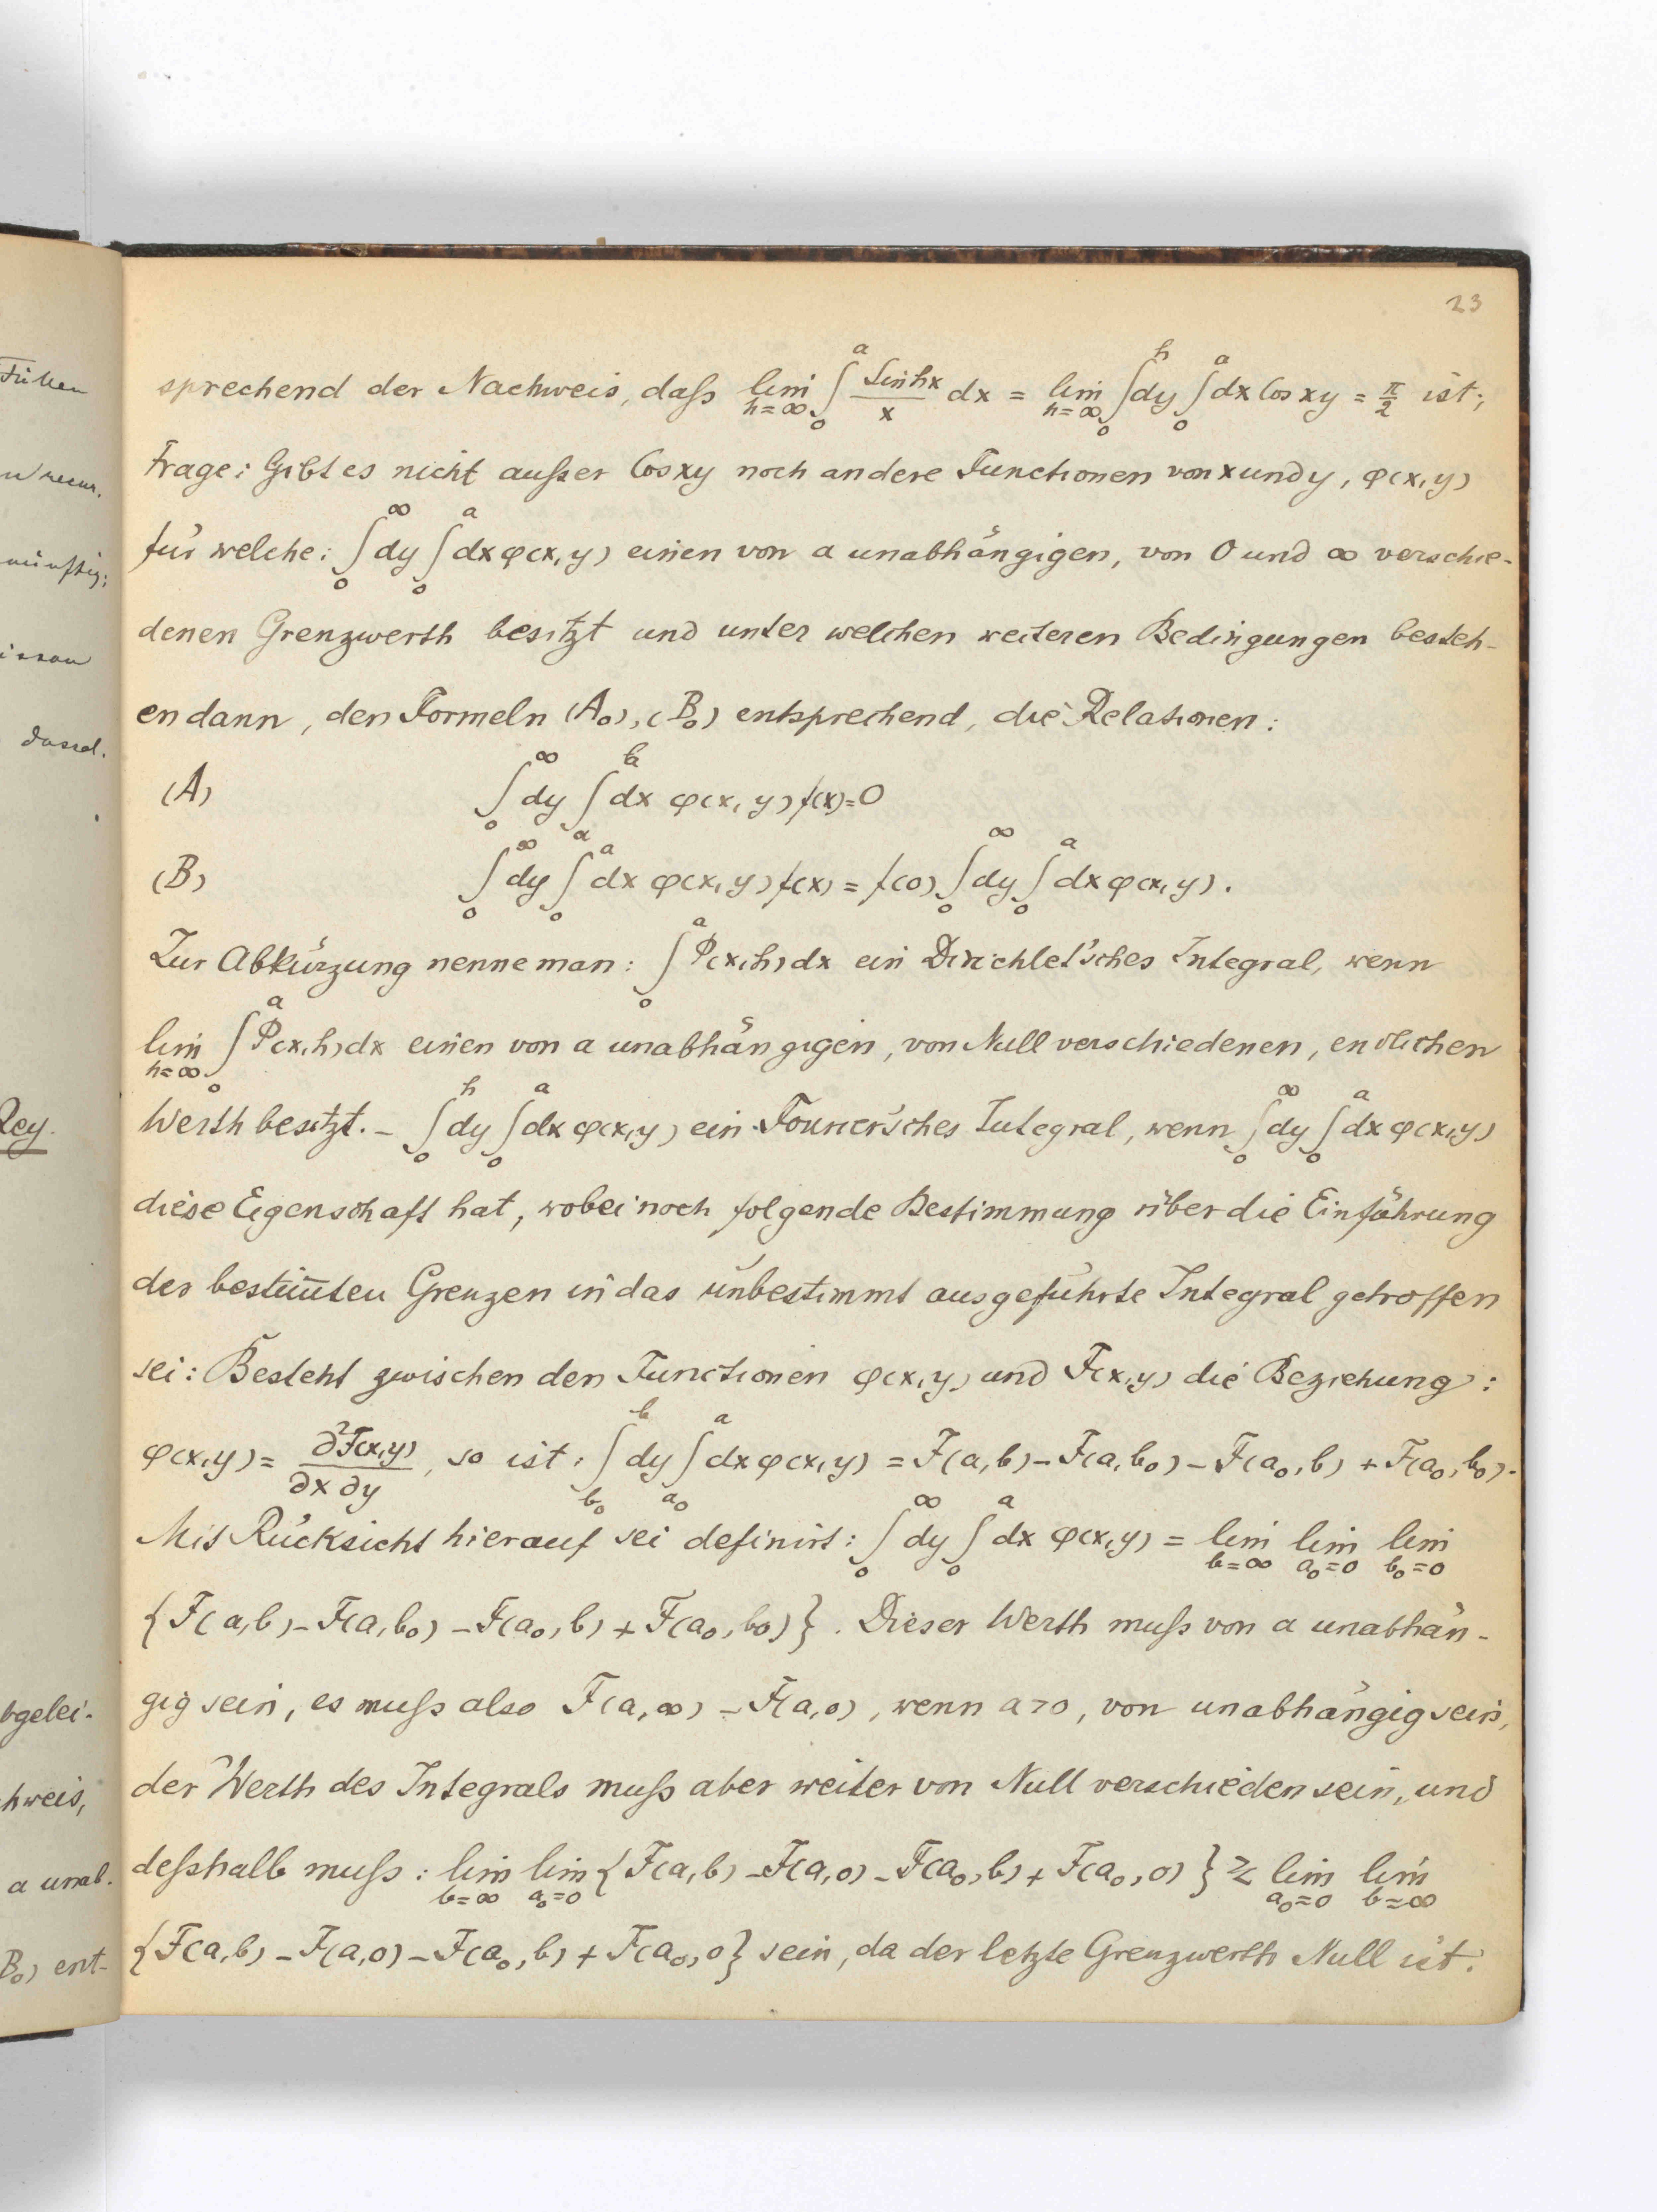 23
Fällen
sprechend der Nachweis, daß lim_{h=∞} ∫_0^a (Sin hx / x) dx = lim_{h=∞} ∫_0^h dy ∫_0^a dx Cos xy = π/2 ist;
Frage: Gibt es nicht außer Cos xy noch andere Functionen von x und y, φ(x,y)
für welche: ∫_0^∞ dy ∫_0^a dx φ(x,y) einen von a unabhängigen, von 0 und ∞ verschie-
denen Grenzwerth besitzt und unter welchen weiteren Bedingungen besteh-
en dann, den Formeln (A₀), (B₀) entsprechend, die Relationen:
(A) ∫_0^∞ dy ∫_a^b dx φ(x,y) f(x) = 0
(B) ∫_0^∞ dy ∫_0^a dx φ(x,y) f(x) = f(0) ∫_0^∞ dy ∫_0^a dx φ(x,y).
Zur Abkürzung nenne man: ∫_0^a Φ(x,h) dx ein Dirichlet'sches Integral, wenn
lim_{h=∞} ∫_0^a Φ(x,h) dx einen von a unabhängigen, von Null verschiedenen, endlichen
Werth besitzt. – ∫_0^h dy ∫_0^a dx φ(x,y) ein Fourier'sches Integral, wenn ∫_0^∞ dy ∫_0^a dx φ(x,y)
diese Eigenschaft hat, wobei noch folgende Bestimmung über die Einführung
der bestim̅ten Grenzen in das unbestimmt ausgeführte Integral getroffen
sei: Besteht zwischen den Functionen φ(x,y) und F(x,y) die Beziehung:
φ(x,y) = ∂²F(x,y) / ∂x ∂y, so ist: ∫_{b₀}^b dy ∫_{a₀}^a dx φ(x,y) = F(a,b) – F(a,b₀) – F(a₀,b) + F(a₀,b₀).
Mit Rücksicht hierauf sei definirt: ∫_0^∞ dy ∫_0^a dx φ(x,y) = lim_{b=∞} lim_{a₀=0} lim_{b₀=0}
{F(a,b) – F(a,b₀) – F(a₀,b) + F(a₀,b₀)}. Dieser Werth muß von a unabhän-
gig sein, es muß also F(a,∞) – F(a,0), wenn a>0, von unabhängig sein,
der Werth des Integrals muß aber weiter von Null verschieden sein, und
deßhalb muss: lim_{b=∞} lim_{a₀=0} {F(a,b) – F(a,0) – F(a₀,b) + F(a₀,0)} ≷ lim_{a₀=0} lim_{b=∞}
{F(a,b) – F(a,0) – F(a₀,b) + F(a₀,0} sein, da der letzte Grenzwerth Null ist.
dassel.
Rey.
bgelei-
hweis,
a unab.
B₀) ent-